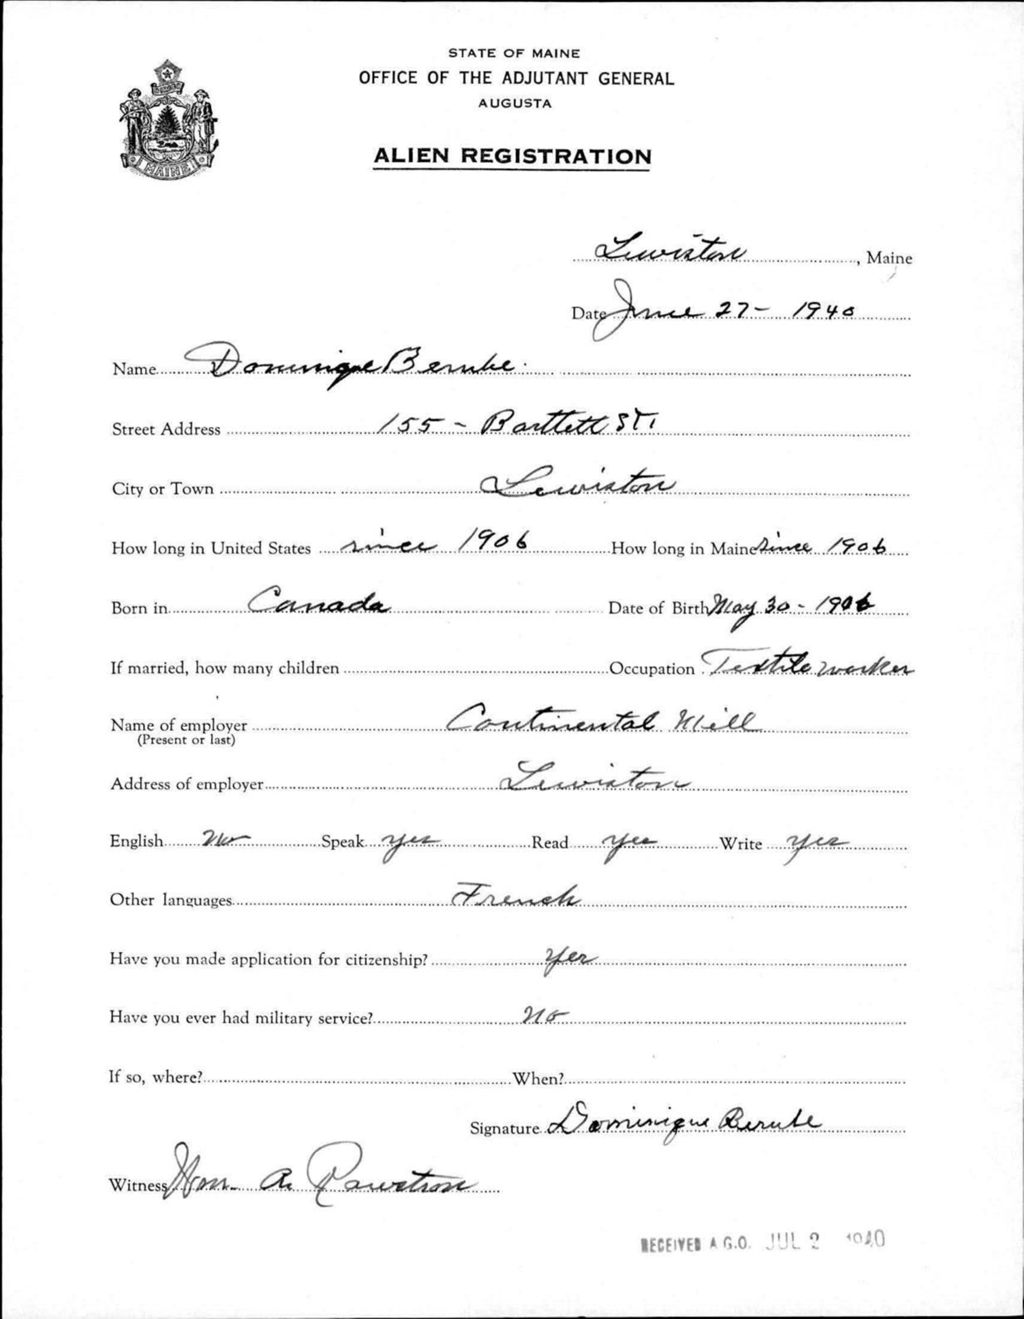 STATE OF MAINE
OFFICE OF THE ADJUTANT GENERAL
AUGUSTA
MAINE
ALIEN REGISTRATION
Lewiston, Maine
Date June 27 - 1940
Name Dominique Berube
Street Address 155 - Bartlett St.
City or Town Lewiston
How long in United States since 1906 How long in Maine Since 1906
Born in Canada Date of Birth May 30 - 1906
If married, how many children Occupation Textile worker
Name of employer Continental Mill
(Present or last)
Address of employer Lewiston
English No Speak yes Read yes Write yes
Other languages French
Have you made application for citizenship? Yes
Have you ever had military service? No
If so, where? When?
Signature Dominique Berube
Witness Wm. A. Rawstron
RECEIVED A.G.O. JUL 2 1940